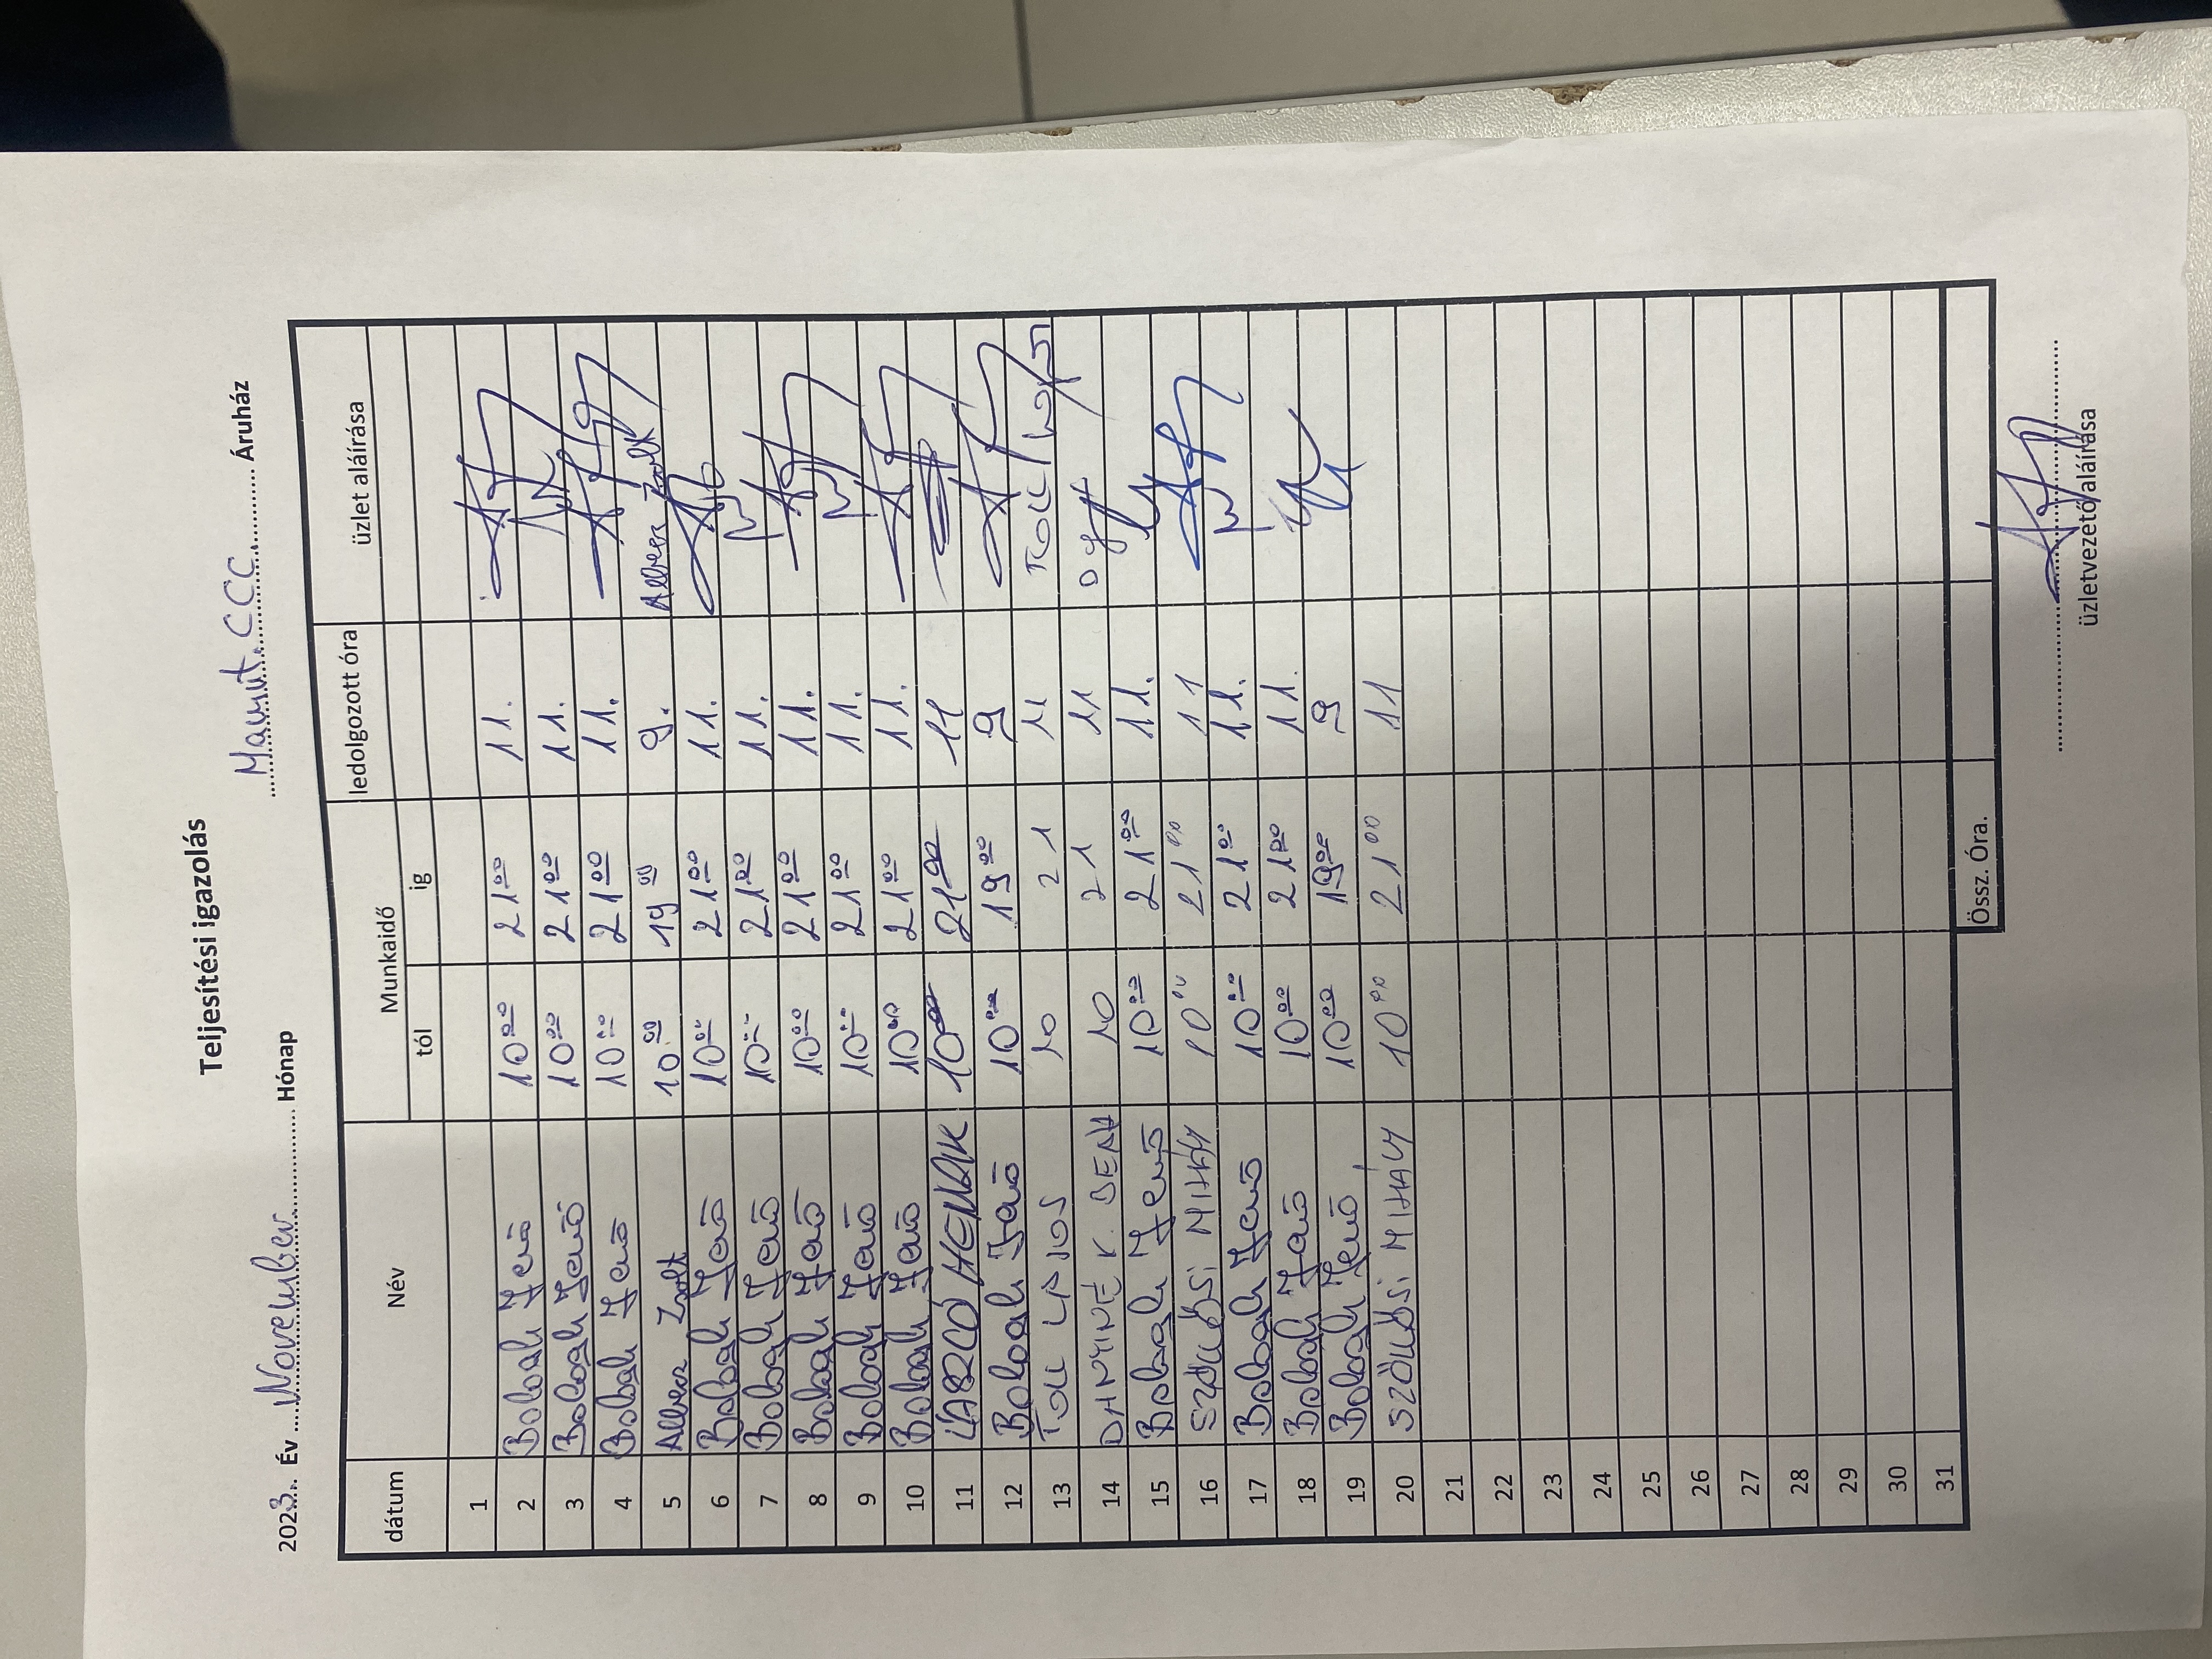 Teljesítési igazolás
2023. Év November Hónap Mamut CCC Áruház
dátum Név Munkaidő ledolgozott óra üzlet aláírása
tól ig
1
2 Balogh Jenő 10 00 21 00 11.
3 Balogh Jenő 10 00 21 00 11.
4 Balogh Jenő 10 00 21 00 11.
5 Albesz Zsolt 10 00 19 00 9. Albesz Zsolt
6 Balogh Jenő 10 00 21 00 11.
7 Balogh Jenő 10 00 21 00 11.
8 Balogh Jenő 10 00 21 00 11.
9 Balogh Jenő 10 00 21 00 11.
10 Balogh Jenő 10 00 21 00 11.
11 HENRIK 10 00 21 00 11
12 Balogh Jenő 10 00 19 00 9
13 LAJOS 10 21 11
14 K. 10 21 11
15 Balogh Jenő 10 00 21 00 11.
16 MIHÁLY 10 00 21 00 11
17 Balogh Jenő 10 00 21 00 11.
18 Balogh Jenő 10 00 21 00 11.
19 Balogh Jenő 10 00 19 00 9
20 MIHÁLY 10 00 21 00 11
21
22
23
24
25
26
27
28
29
30
31
Össz. Óra.
üzletvezető aláírása